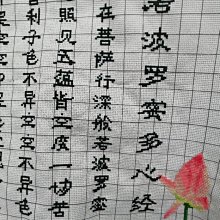 若波罗蜜多心经
在菩萨行深般若波罗蜜
照见五蕴皆空度一切苦
舍利子色不异空空不异